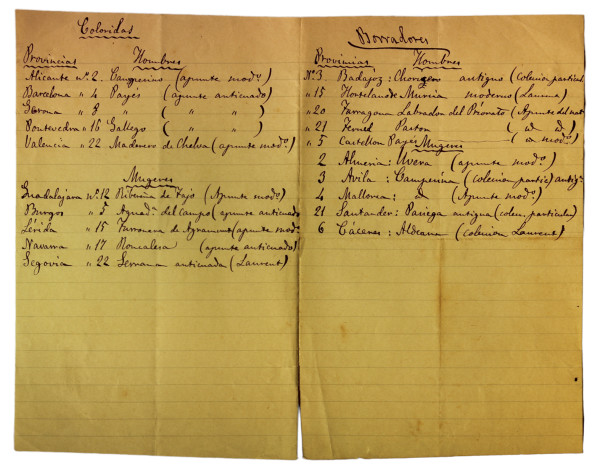 Coloridas
Provincias Hombres
Alicante nº 2. Campesino (apunte modº)
Barcelona " 4 Payés (apunte anticuado)
Gerona " 8 " ( " " )
Pontevedra " 16 Gallego ( " " )
Valencia " 22 Maderero de Chelva (apunte modº)
Mugeres
Guadalajara nº 12 Ribereña de Tajo (Apunte modº)
Burgos " 5 Aguadª del campo (apunte anticuado
Lérida " 15 de Agramunt (apunte modº
Navarra " 17 Roncalesa (apunte anticuado)
Segovia " 22 Serrana anticuada (Laurent)
Borradores
Provincias Hombres
Nº 3. Badajoz: Choricero antiguo (coleccion particul
" 15 Hortelano de Murcia moderno (Laurent)
" 20 Tarragona Labrador del Priorato (Apunte del nat
" 21 Teruel Pastor ( id id )
" 5 Castellon Payés ( id modº)
Mugeres
2 Almeria: Uvera (apunte modº)
3 Avila: Campesina (coleccion partic) antigª
4 Mallorca: id (Apunte modº)
21 Santander: Pasiega antigua (colecn particular)
6 Cáceres: Aldeana (coleccion Laurent)